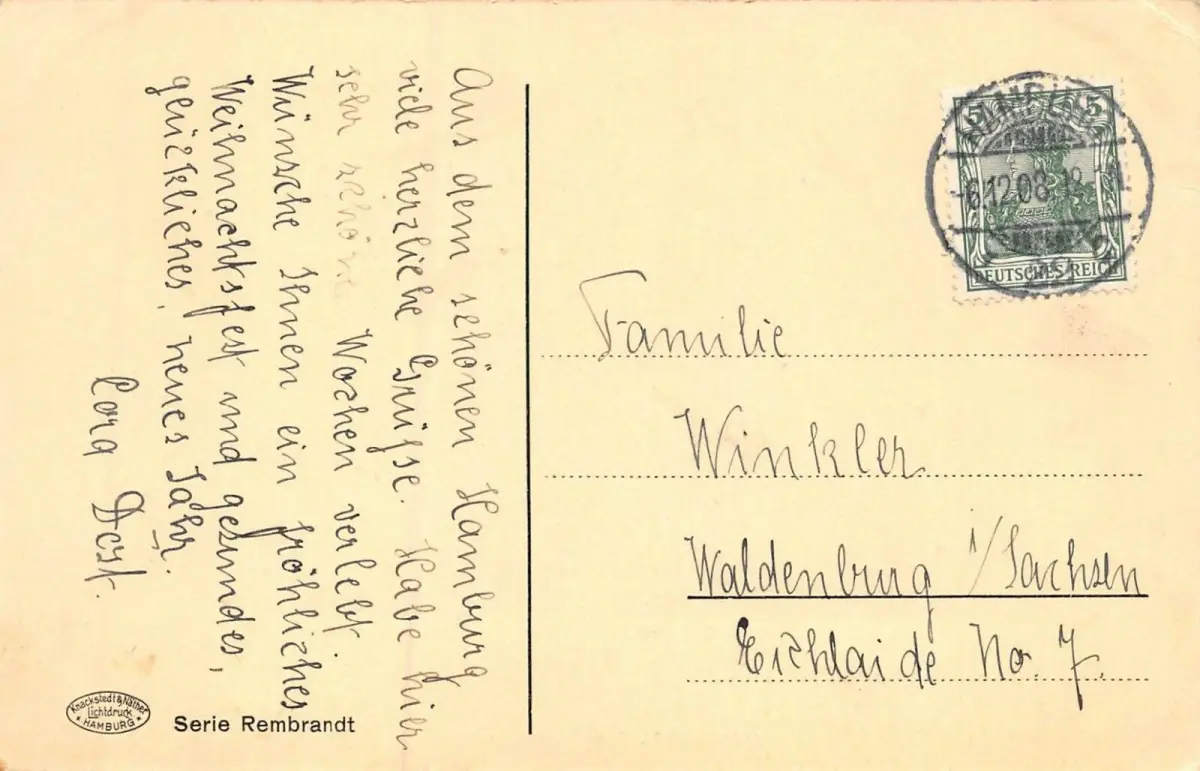 Aus dem schönen Hamburg
viele herzliche Grüsse. Habe hier
sehr schöne Wochen verlebt.
Wünsche Ihnen ein fröhliches
Weihnachtsfest und gesundes,
glückliches, neues Jahr.
Cora
5 5
-6.12.08
DEUTSCHES REICH
Familie
Winkler
Waldenburg i/Sachsen
Eichlaide No. 7.
Knackstedt & Näther
Lichtdruck
HAMBURG
Serie Rembrandt